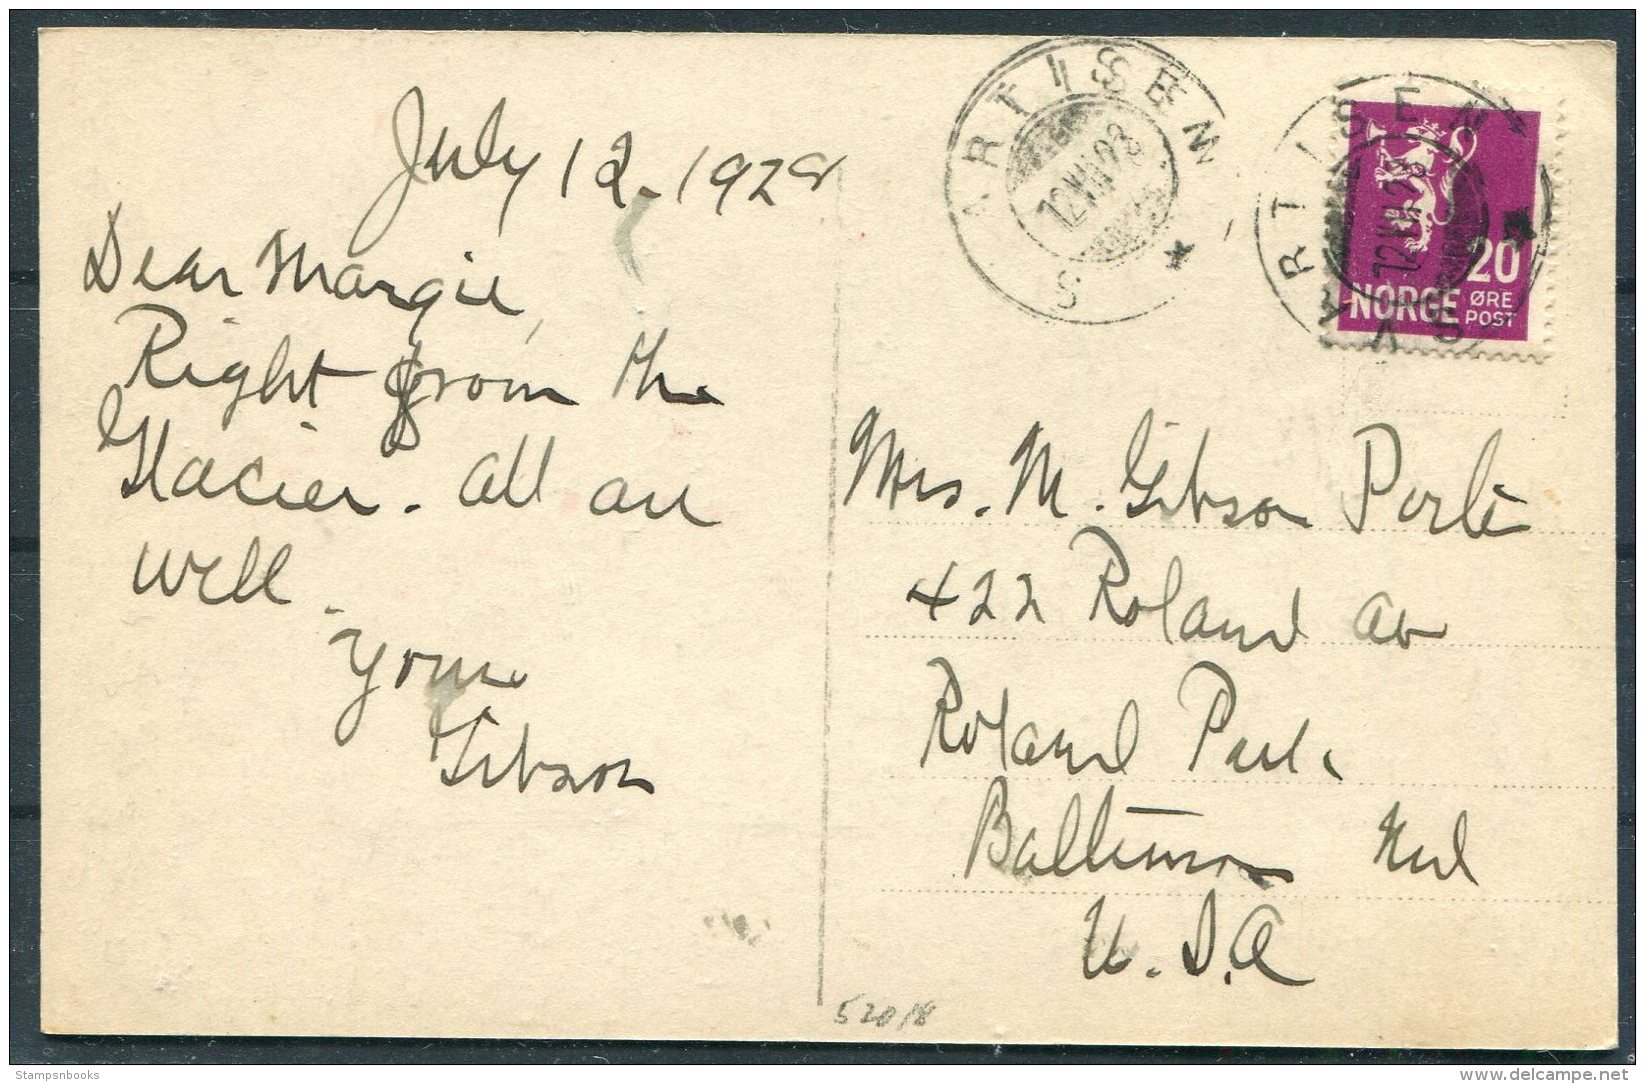 July 12 - 1928
Dear Margie,
Right from the
Glacier. All are
well.
Yours
Gibson
SVARTISEN
12 VII 28
SVARTISEN
12 VII 28
20
NORGE ØRE
POST
Mrs. M. Gibson Porter
422 Roland Av
Roland Park
Baltimore Md
U.S.A
52018
Stampsnbooks
delcampe.net